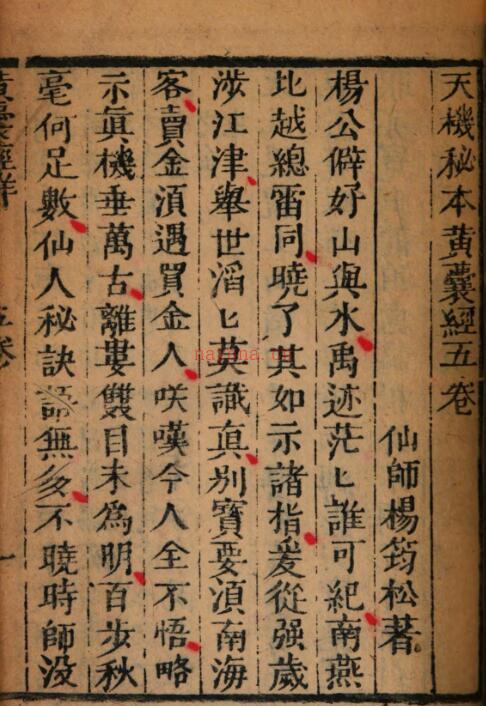 天機秘本黃囊經五卷
仙師楊筠松著
楊公僻好山與水禹迹茫匕誰可紀南燕
北越總雷同曉了其如示諸指爰從强歲
涉江津舉世滔匕莫識眞別寶要湏南海
客賣金湏遇買金人咲嘆今人全不悟略
示眞機垂萬古離婁雙目未爲明百步秋
毫何足數仙人秘訣語無多不曉時師没
五卷
一